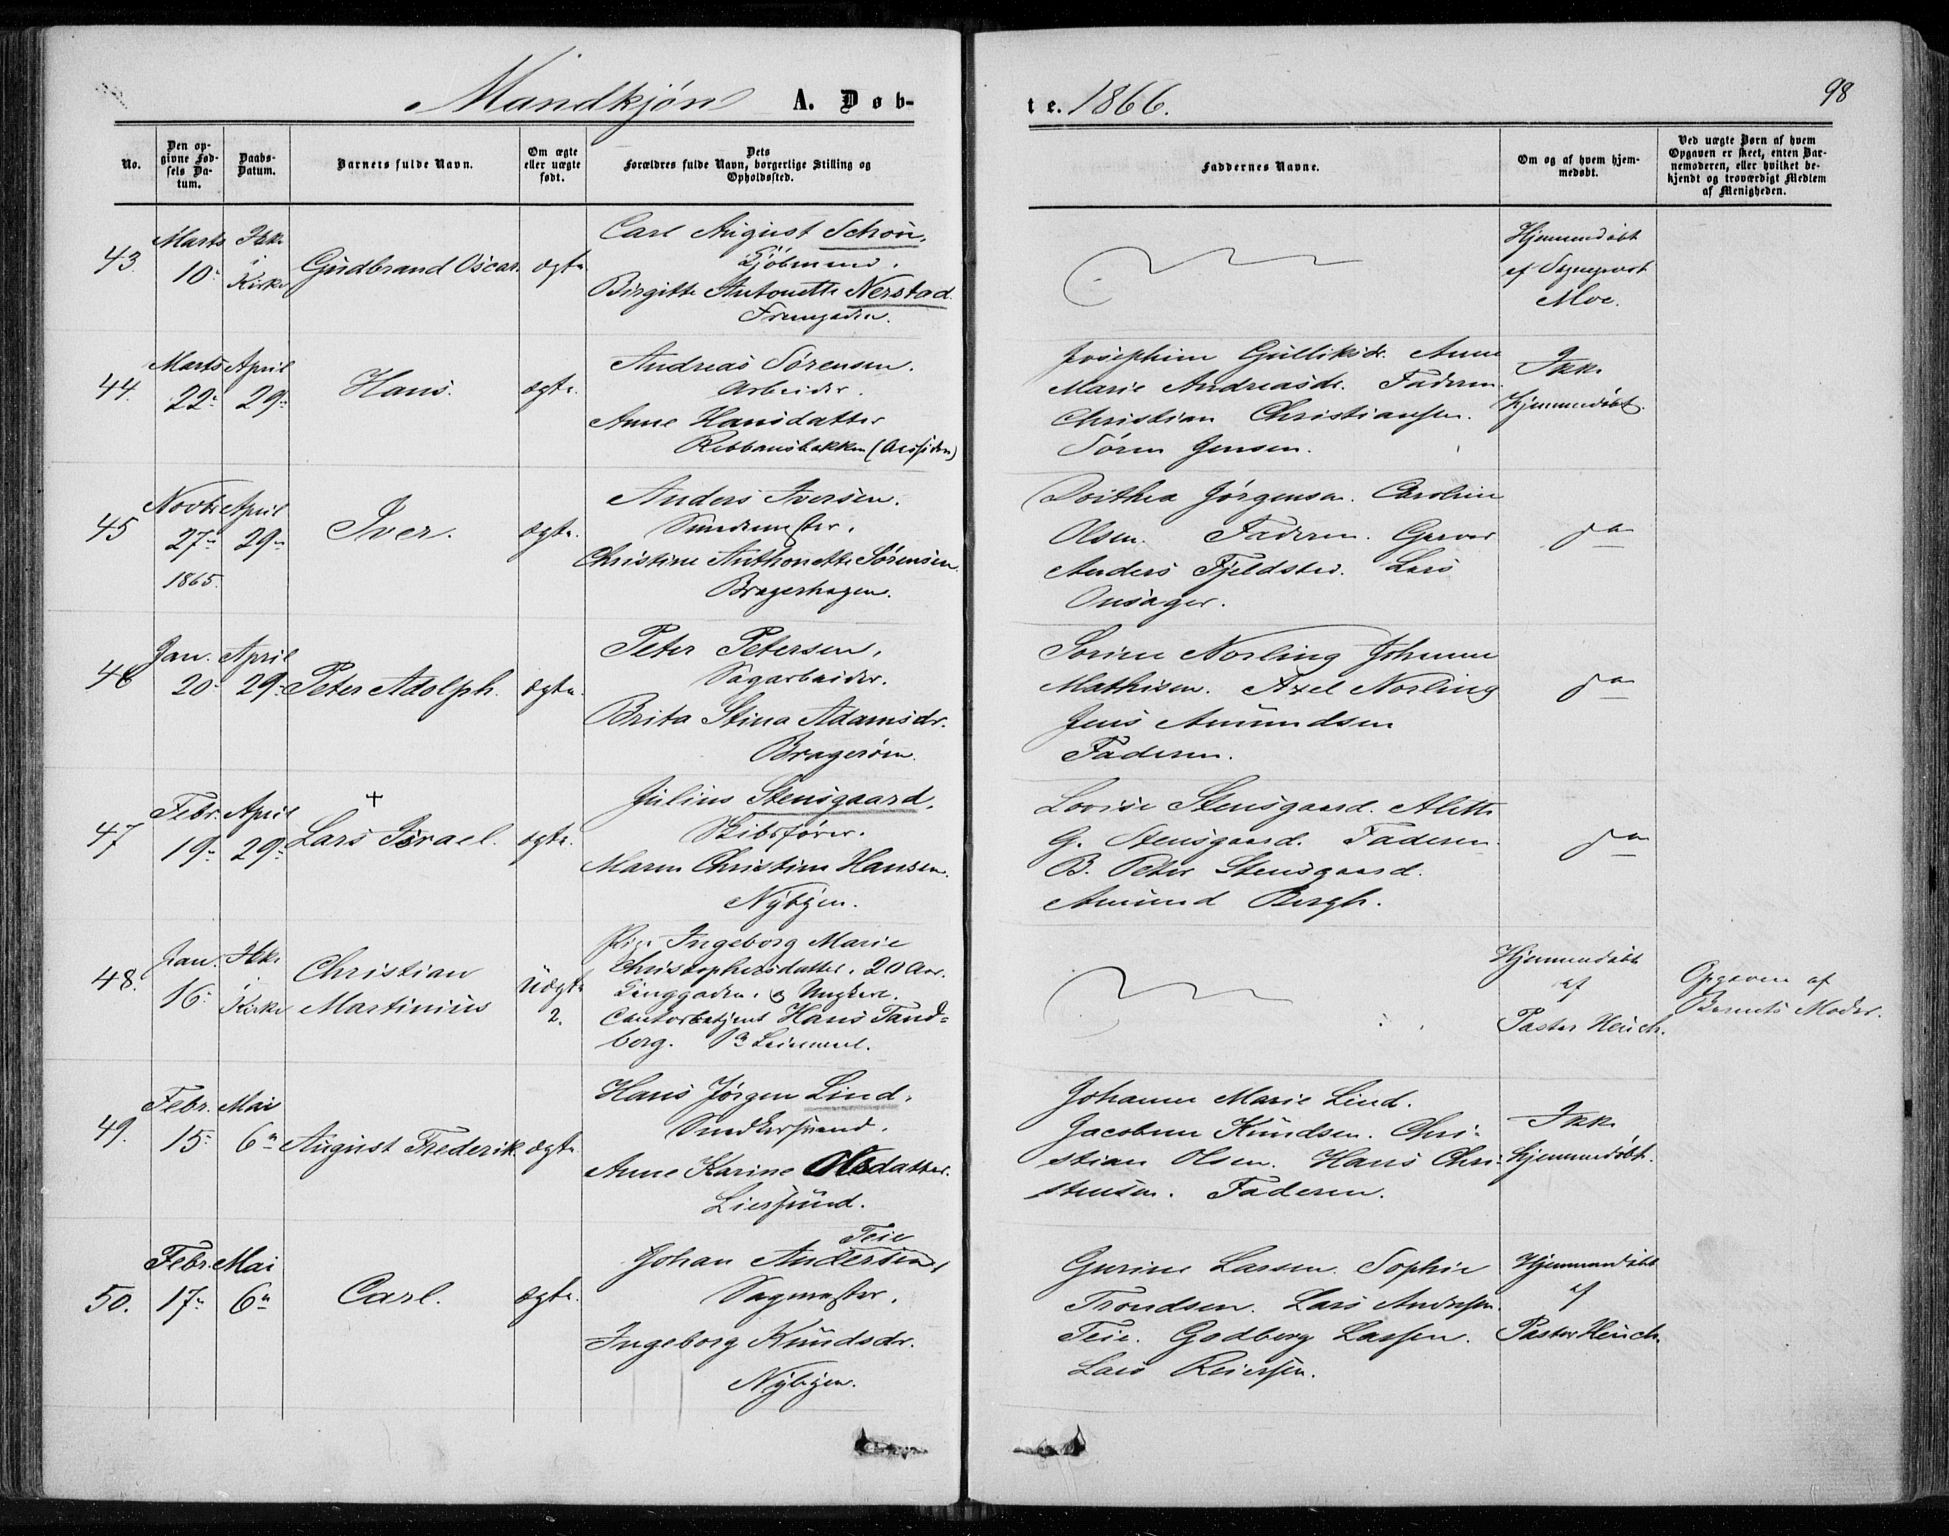 Mandkjøn A. Døb-
te. 1866.
98
No.
Den op-
givne Fød-
sels Da-
tum.
Daabs-
Datum.
Barnets fulde Navn.
Om ægte
eller uægte
født.
Dets
Forældres fulde Navn, borgerlige Stilling og
Opholdssted.
Faddernes Navne.
Om og af hvem hjem-
medøbt.
Ved uægte Børn af hvem
Opgaven er skeet, enten Bar-
nemoderen, eller hvilket be-
kjendt og troværdigt Medlem
af Menigheden.
43.
Marts
10
Ikke
i
Kirke
Gudbrand Oscar
ægte
Carl August Schøn,
Kjøbmand.
Birgitte Antonette Nerstad.
Hjemmedøbt
af Sogneprest
Moe.
44.
Marts
22
April
29
Hans.
ægte.
Andreas Sørensen.
Arbeider.
Anne Hansdatter
Josephine Gulliksdr. Anne
Marie Andreasdr. Faderen.
Christian Christiansen.
Søren Jensen.
Ikke
Hjemmedøbt.
45
Novbr
27
1865.
April
29
Iver.
ægte.
Anders Iversen.
Christine Anthonette Sørensen.
Bragerhagen.
Dorthea Jørgensen. Caroline
Olsen. Faderen. Garver
Anders Fjeldsted. Lars
Onsager.
46
Jan.
20
April
29
Peter Adolph.
ægte.
Peter Petersen,
Sagarbeider.
Brita Stina Adamsdr.
Bragerøen.
Sorine Norling Johanne
Mathisen. Axel Norling
Jens Amundsen
Faderen.
47
Febr.
19
April
29
Lars Israel.
ægte.
Julius Stensgaard,
Skibsfører.
Maren Christine Hansen.
Nybyen.
Lovise Stensgaard. Alette
G. Stensgaard. Faderen.
B. Peter Stensgaard.
Amund Bergh.
48.
Jan.
16
Ikke
i
Kirke
Christian
Martinius
Uægte
2.
Pige Ingeborg Marie
Christophersdatter. 20 Aar.
Tinggaden. og Ungkarl.
Contorbetjent Hans Tand-
berg.
Hjemmedøbt
af
Pastor Heuch.
Opgaven af
Barnets Moder.
49.
Febr.
15
Mai
6
August Frederik
ægte.
Hans Jørgen Lind,
Anne Karine Olsdatter.
Liersund.
Johanne Marie Lind.
Jacobine Knudsen. Chri-
stian Olsen. Hans Chri-
stensen. Faderen.
Ikke
hjemmedøbt.
50.
Febr.
17
Mai
6
Carl.
ægte.
Teie
Johan Andersen,
Sagmester.
Ingeborg Knudsdr.
Nybyen.
Gurine Larsen. Sophie
Trondsen. Lars Andersen
Teie. Godberg Larsen.
Lars Reiersen.
Hjemmedøbt
af
Pastor Heuch.